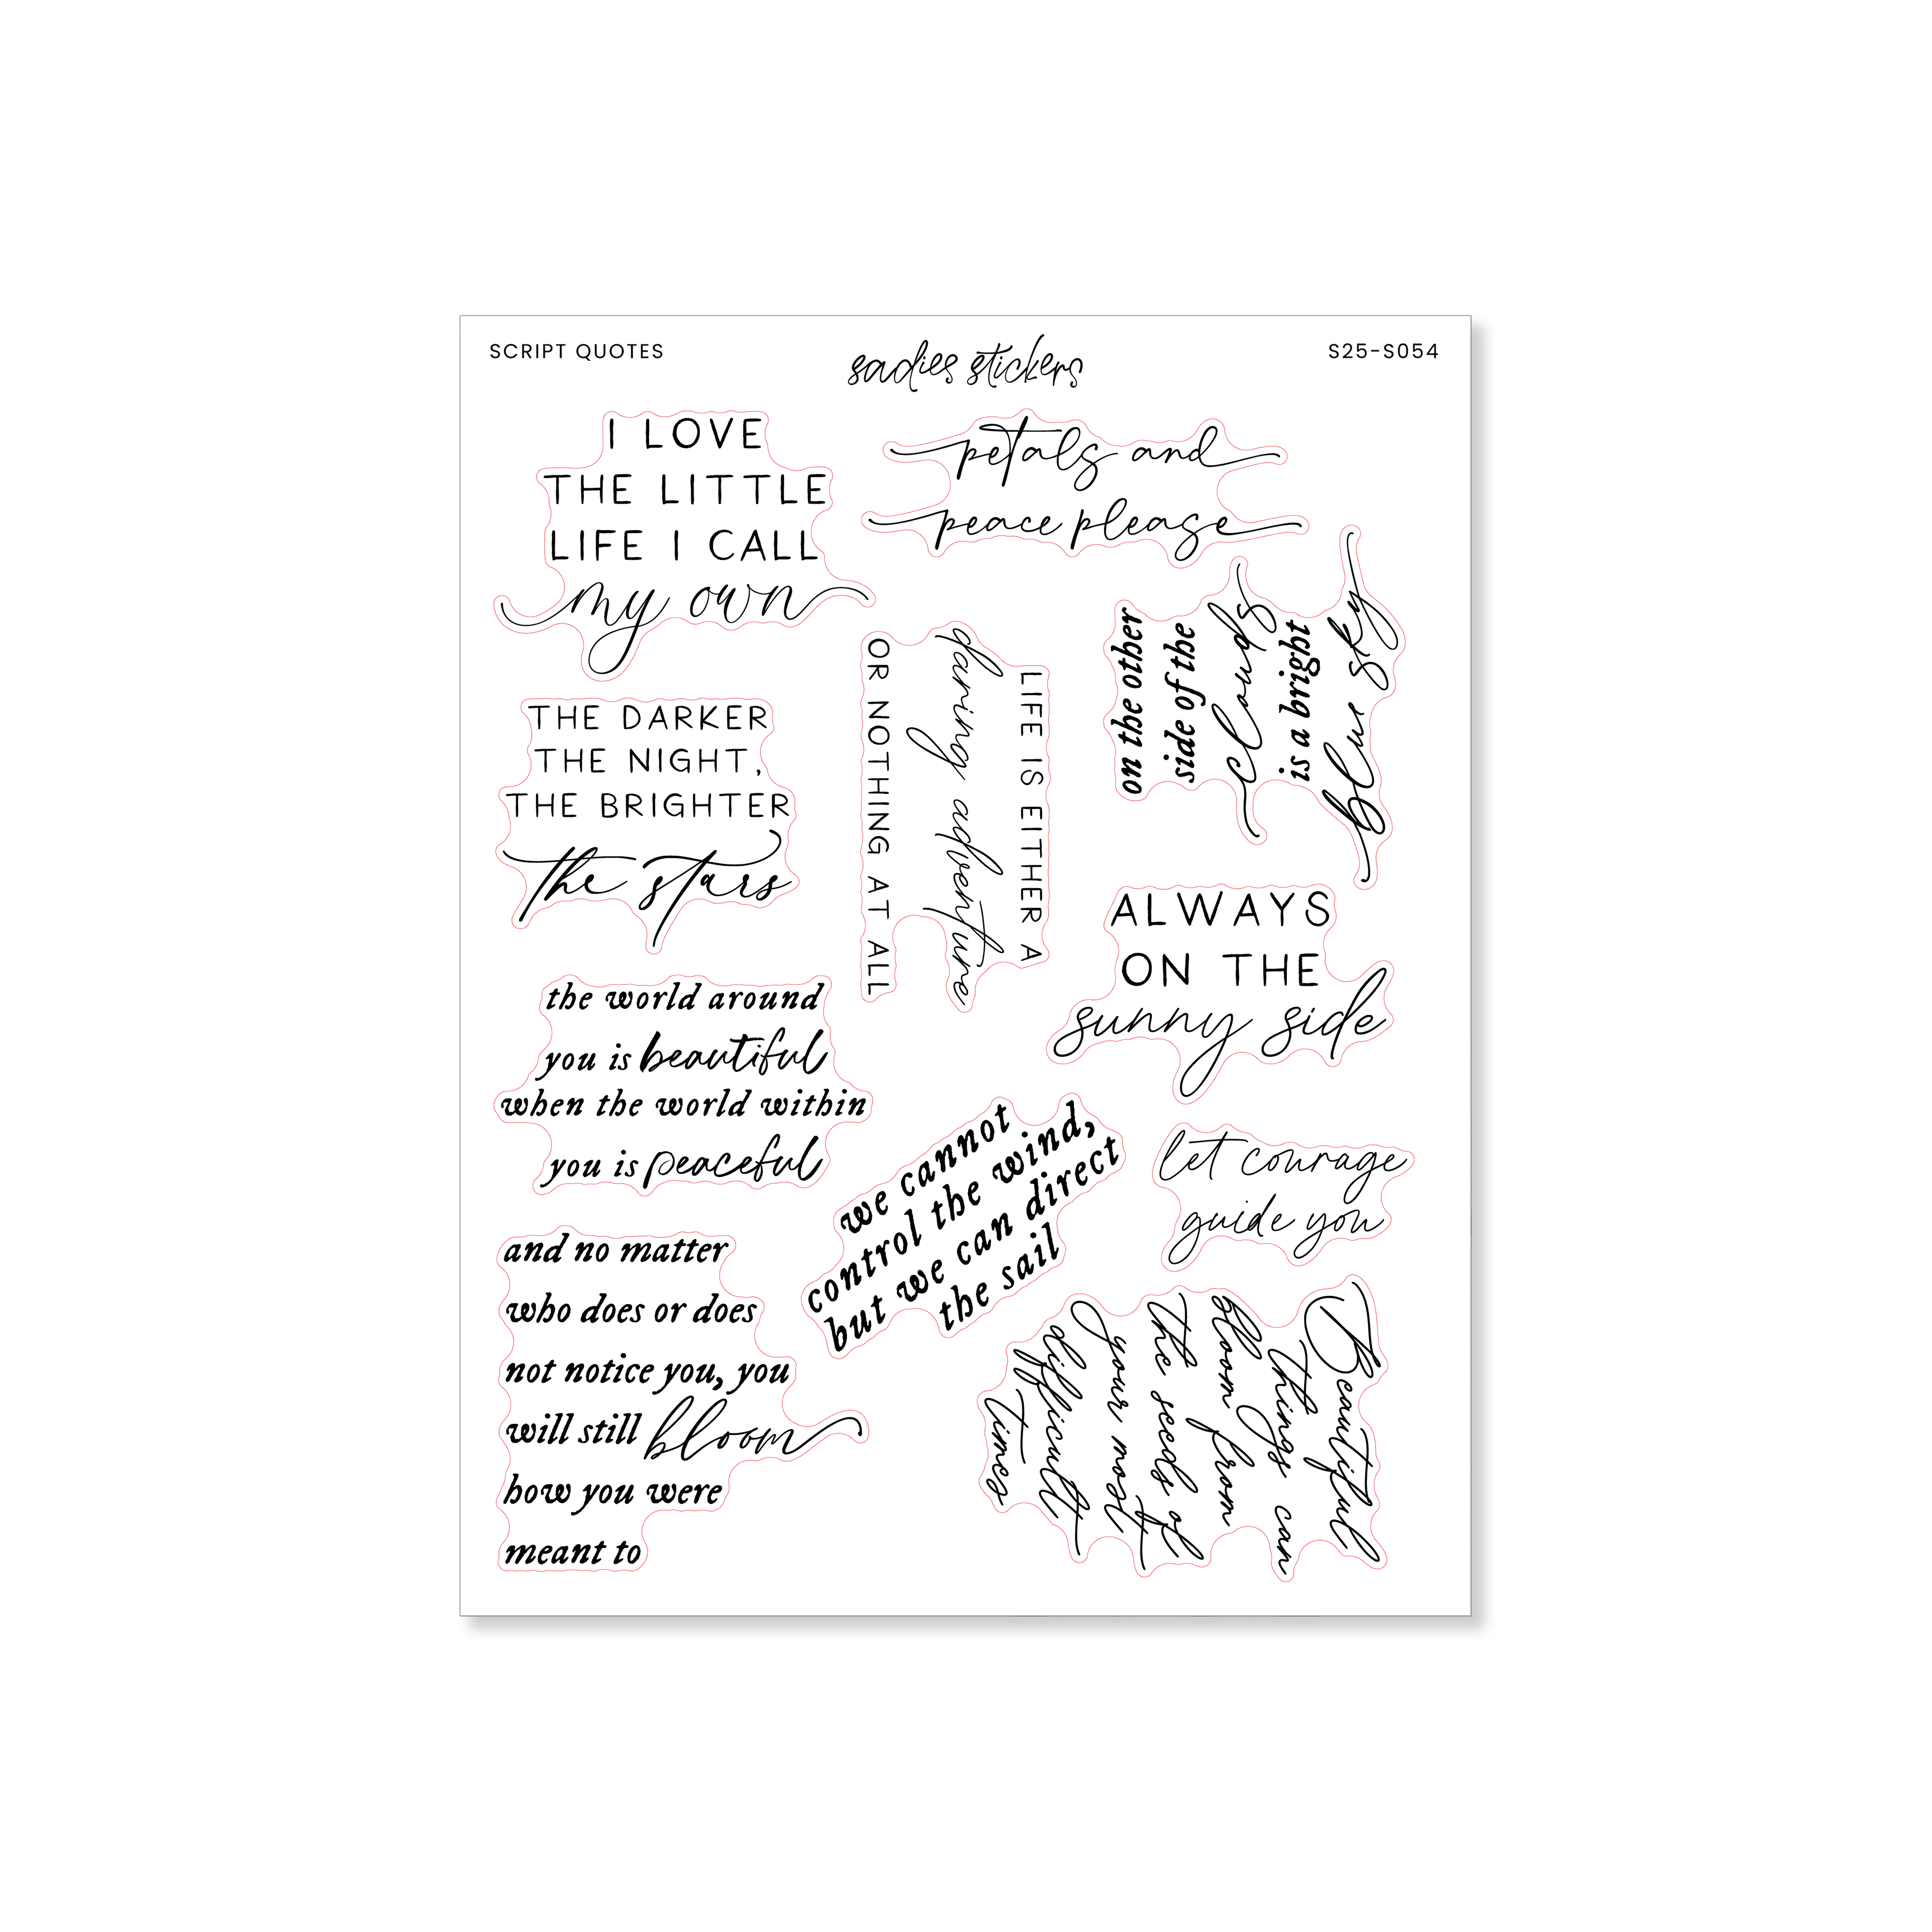 SCRIPT QUOTES
sadies stickers
S25-S054
I LOVE
THE LITTLE
LIFE I CALL
my own
petals and
peace please
on the other
side of the
clouds
is a bright
blue sky
LIFE IS EITHER A
daring adventure
OR NOTHING AT ALL
THE DARKER
THE NIGHT,
THE BRIGHTER
the stars
ALWAYS
ON THE
sunny side
the world around
you is beautiful
when the world within
you is peaceful
we cannot
control the wind,
but we can direct
the sail
let courage
guide you
and no matter
who does or does
not notice you, you
will still bloom
how you were
meant to
Beautiful
things can
bloom from
the seeds of
your most
difficult
times